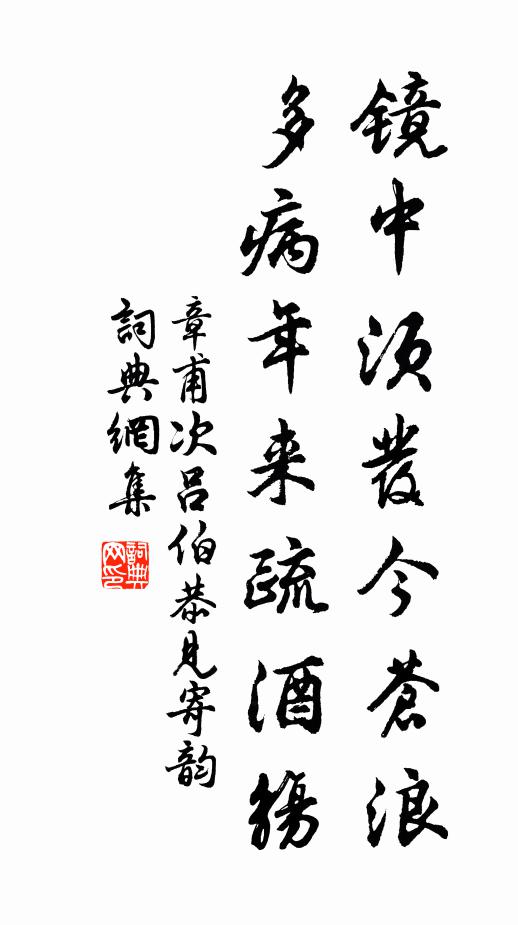 镜中须發今蒼浪
多病年来疏酒觴
章甫次呂伯恭見寄韵
詞典網集
詞典网印